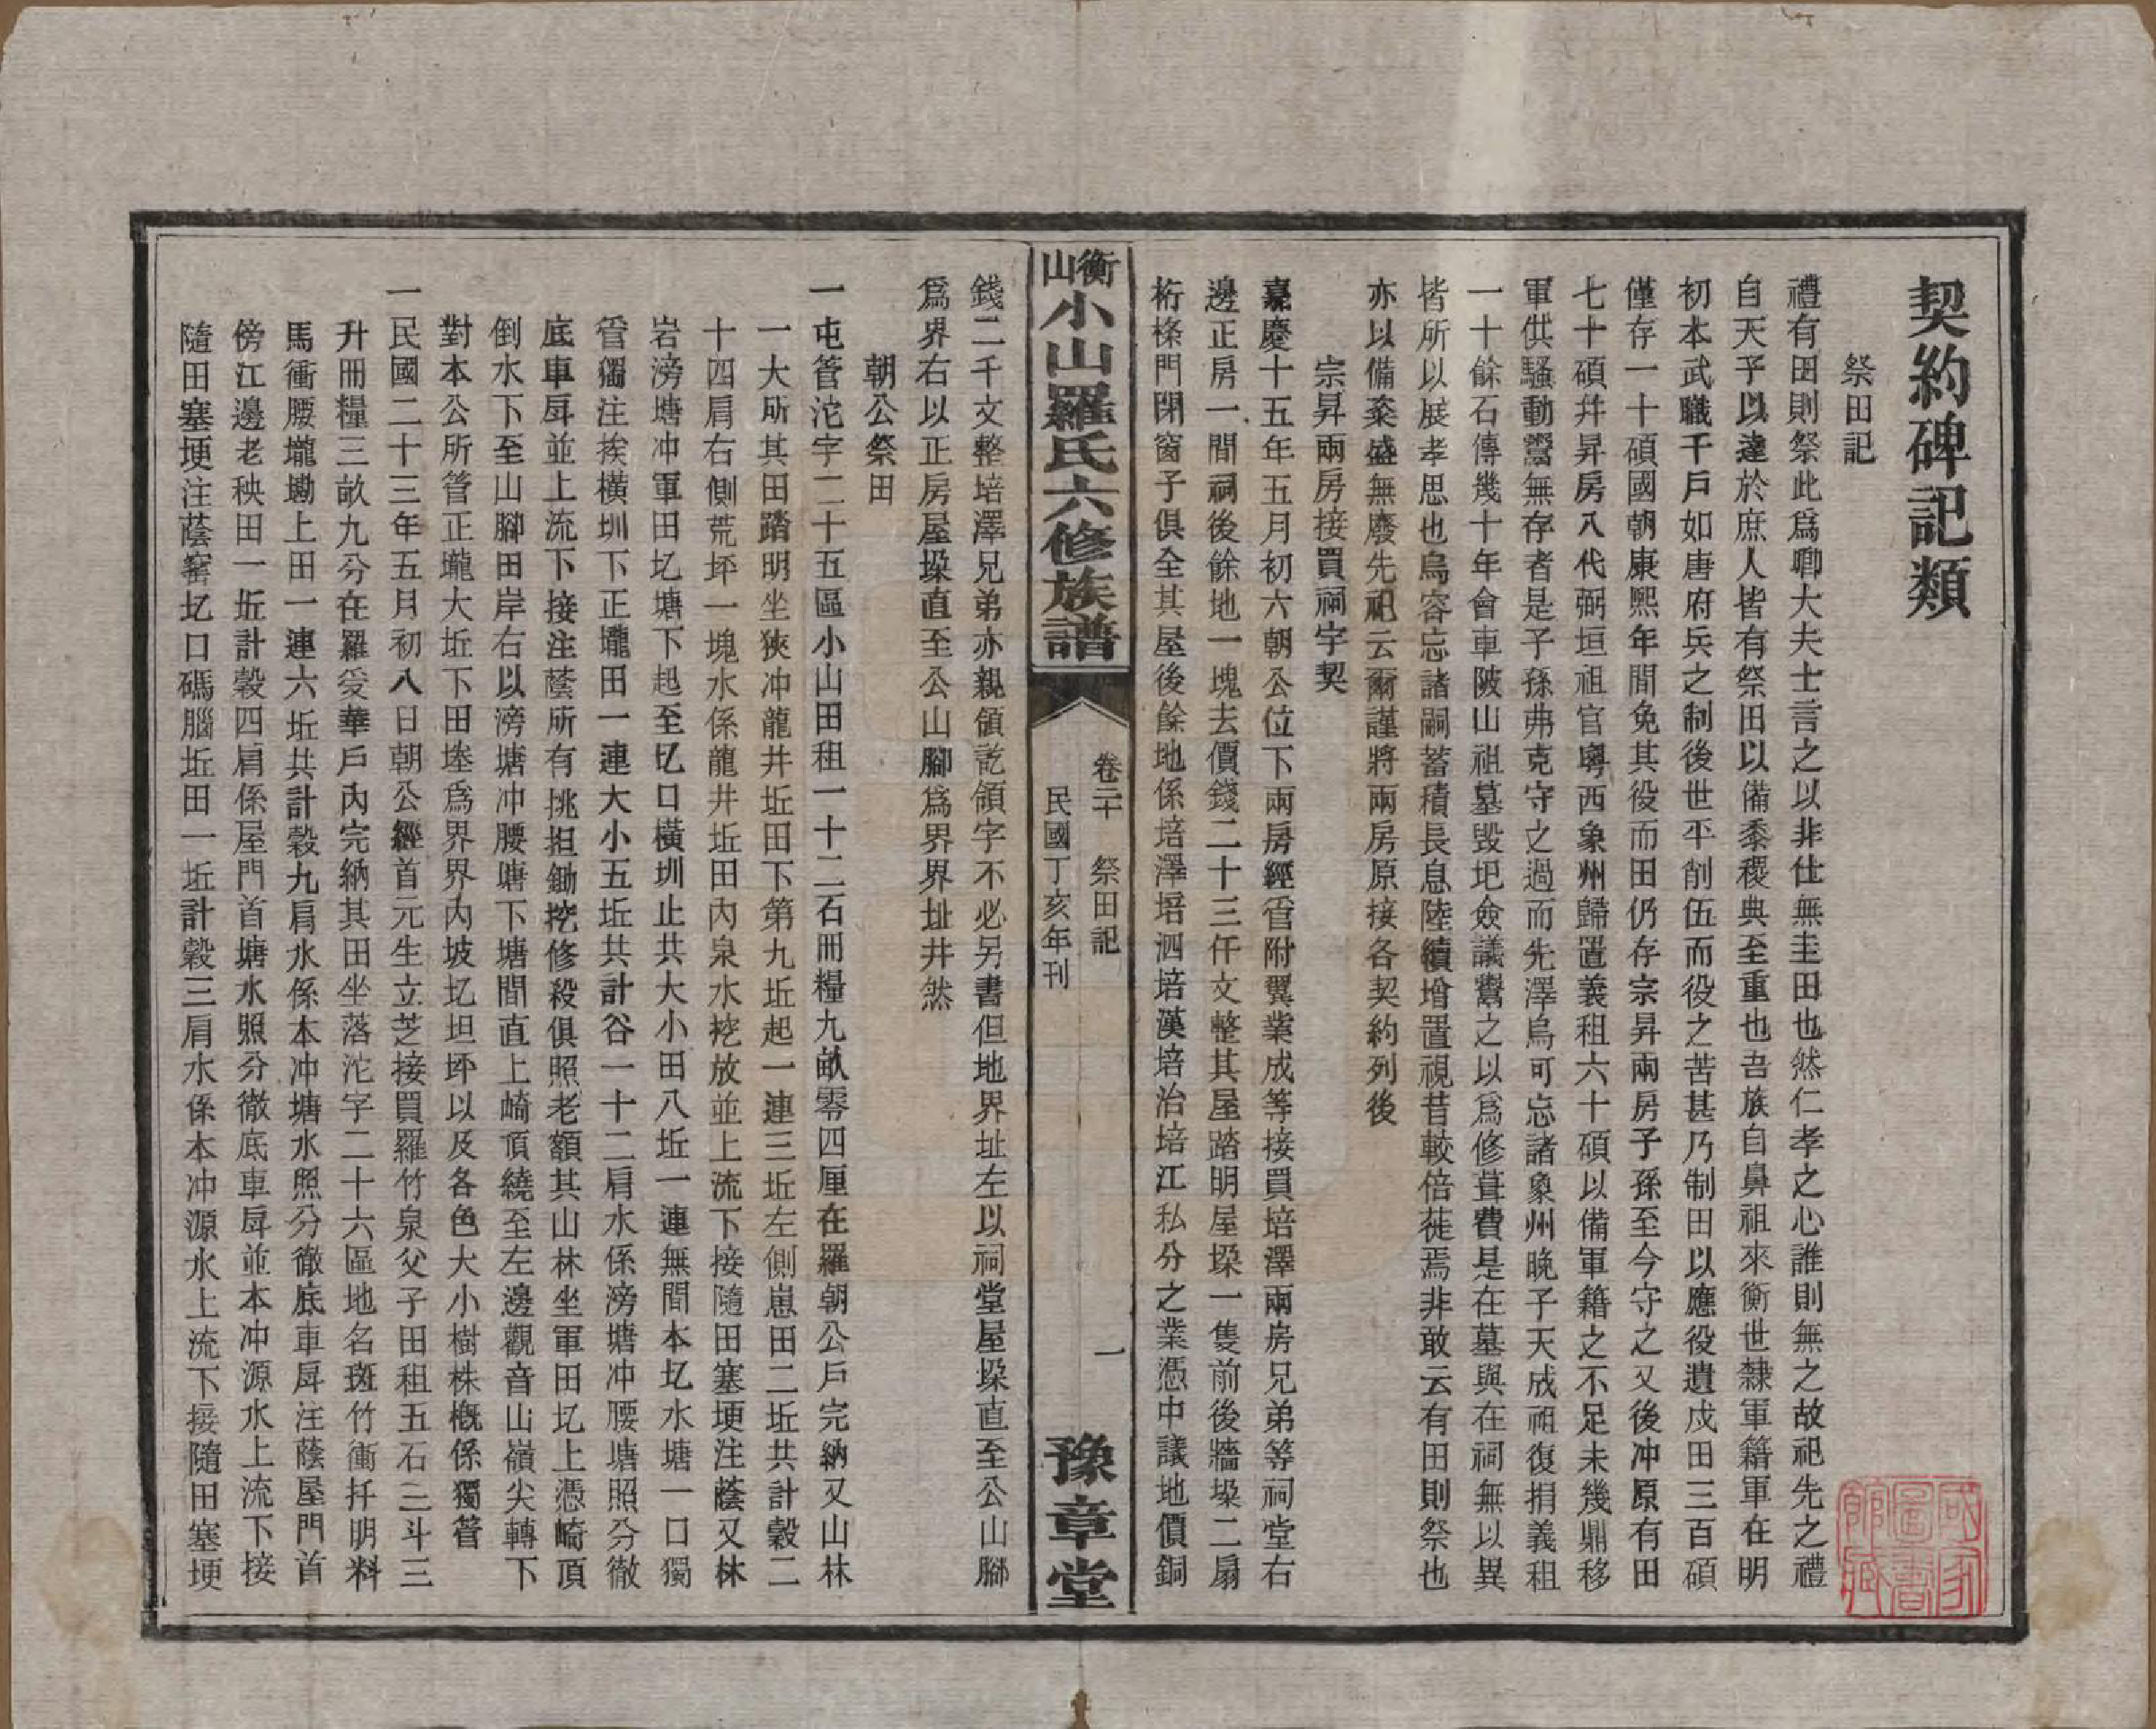 契約碑記類
祭田記
禮有田則祭此爲卿大夫士言之以非仕無圭田也然仁孝之心誰則無之故祀先之禮
自天子以達於庶人皆有祭田以備黍稷典至重也吾族自鼻祖來衡世隸軍籍軍在明
初本武職千戶如唐府兵之制後世平削伍而役之苦甚乃制田以應役遺戍田三百碩
僅存一十碩國朝康熙年間免其役而田仍存宗昇兩房子孫至今守之又後冲原有田
七十碩幷昇房八代弼垣祖官粵西象州歸置義租六十碩以備軍籍之不足未幾鼎移
軍供騷動鬻無存者是子孫弗克守之過而先澤烏可忘諸象州晚子天成祖復捐義租
一十餘石傳幾十年會車陂山祖墓毀圯僉議鬻之以爲修葺費是在墓與在祠無以異
皆所以展孝思也烏容忘諸嗣蓄積長息陸續增置視昔較倍蓰焉非敢云有田則祭也
亦以備粢盛無廢先祀云爾謹將兩房原接各契約列後
宗昇兩房接買祠字契
嘉慶十五年五月初六朝公位下兩房經管附翼業成等接買培澤兩房兄弟等祠堂右
邊正房一間祠後餘地一塊去價錢二十三仟文整其屋踏明屋垜一隻前後牆垜二扇
桁檪門閉窗子俱全其屋後餘地係培澤培泗培漢培治培江私分之業憑中議地價銅
衡山小山羅氏六修族譜
卷三十 祭田記 一
民國丁亥年刊
豫章堂
錢二千文整培澤兄弟亦親領訖領字不必另書但地界址左以祠堂屋垜直至公山腳
爲界右以正房屋垜直至公山腳爲界界址井然
朝公祭田
一屯管沱字二十五區小山田租一十二石冊糧九畝零四厘在羅朝公戶完納又山林
一大所其田踏明坐狹冲龍井坵田下第九坵起一連三坵左側崽田二坵共計穀二
十四肩右側荒坪一塊水係龍井坵田內泉水挖放並上流下接隨田塞埂注蔭又林
岩滂塘冲軍田圪塘下起至圪口橫圳止共大小田八坵一連無間本圪水塘一口獨
管獨注挨橫圳下正壠田一連大小五坵共計谷一十二肩水係滂塘冲腰塘照分徹
底車戽並上流下接注蔭所有挑担鋤挖修殺俱照老額其山林坐軍田圪上憑崎頂
倒水下至山腳田岸右以滂塘冲腰塘下塘間直上崎頂繞至左邊觀音山嶺尖轉下
對本公所管正壠大坵下田塝爲界界內坡圪坦坪以及各色大小樹株概係獨管
一民國二十三年五月初八日朝公經首元生立芝接買羅竹泉父子田租五石三斗三
升冊糧三畝九分在羅爰華戶內完納其田坐落沱字二十六區地名斑竹衝扦明料
馬衝腰壠墈上田一連六坵共計穀九肩水係本冲塘水照分徹底車戽注蔭屋門首
傍江邊老秧田一坵計穀四肩係屋門首塘水照分徹底車戽並本冲源水上流下接
隨田塞埂注蔭窰圪口碼腦坵田一坵計穀三肩水係本冲源水上流下接隨田塞埂
國家圖書館藏